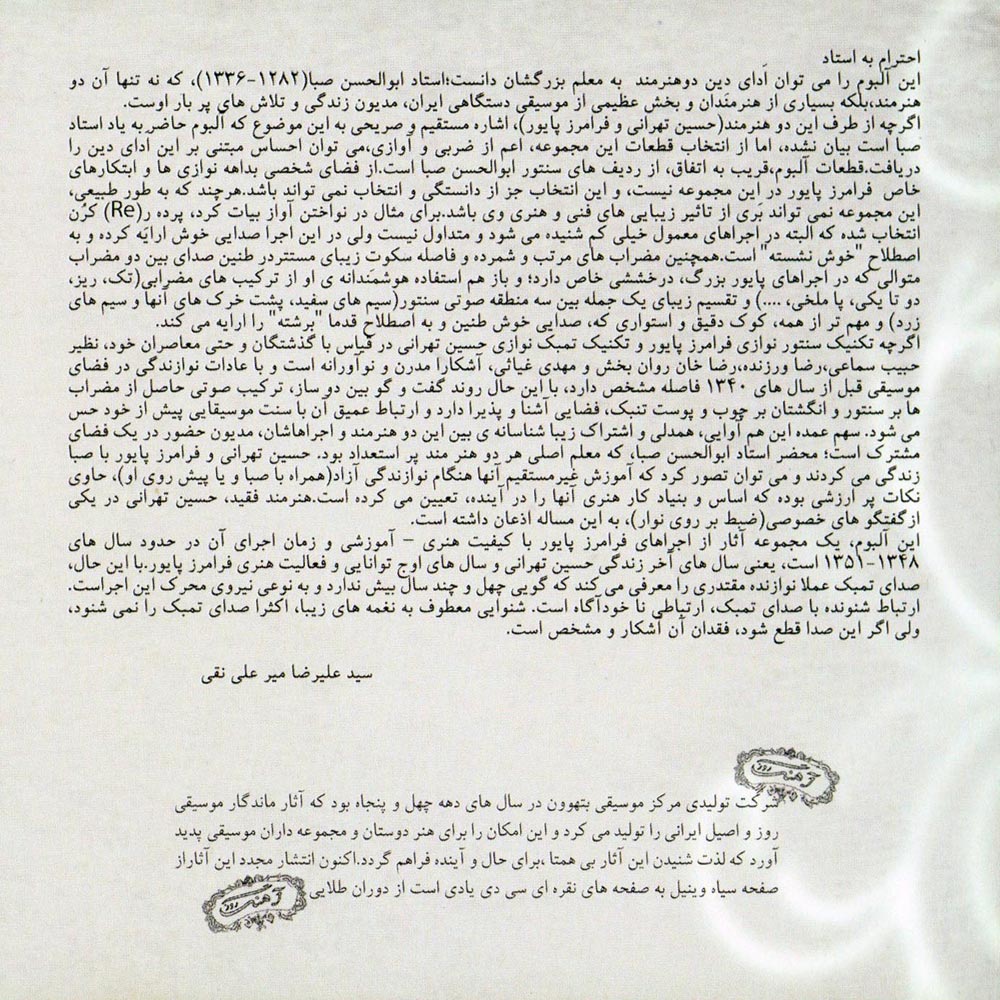 احترام به استاد
این آلبوم را می توان اَدای دین دوهنرمند به معلم بزرگشان دانست؛استاد ابوالحسن صبا(۱۲۸۲-۱۳۳۶)، که نه تنها آن دو
هنرمند،بلکه بسیاری از هنرمندان و بخش عظیمی از موسیقی دستگاهی ایران، مدیون زندگی و تلاش های پر بار اوست.
اگرچه از طرف این دو هنرمند(حسین تهرانی و فرامرز پایور)، اشاره مستقیم و صریحی به این موضوع که آلبوم حاضر به یاد استاد
صبا است بیان نشده، اما از انتخاب قطعات این مجموعه، اعم از ضربی و آوازی،می توان احساس مبتنی بر این اَدای دین را
دریافت.قطعات آلبوم،قریب به اتفاق، از ردیف های سنتور ابوالحسن صبا است.از فضای شخصی بداهه نوازی ها و ابتکارهای
خاص فرامرز پایور در این مجموعه نیست، و این انتخاب جز از دانستگی و انتخاب نمی تواند باشد.هرچند که به طور طبیعی،
این مجموعه نمی تواند بَری از تاثیر زیبایی های فنی و هنری وی باشد.برای مثال در نواختن آواز بیات کرد، پرده ر(Re) کرُن
انتخاب شده که البته در اجراهای معمول خیلی کم شنیده می شود و متداول نیست ولی در این اجرا صدایی خوش ارایه کرده و به
اصطلاح "خوش نشسته" است.همچنین مضراب های مرتب و شمرده و فاصله سکوت زیبای مستتردر طنین صدای بین دو مضراب
متوالی که در اجراهای پایور بزرگ، درخششی خاص دارد؛ و باز هم استفاده هوشمندانه ی او از ترکیب های مضرابی(تک، ریز،
دو تا یکی، پا ملخی، ....) و تقسیم زیبای یک جمله بین سه منطقه صوتی سنتور(سیم های سفید، پشت خرک های آنها و سیم های
زرد) و مهم تر از همه، کوک دقیق و استواری که، صدایی خوش طنین و به اصطلاح قدما "برشته" را ارایه می کند.
اگرچه تکنیک سنتور نوازی فرامرز پایور و تکنیک تمبک نوازی حسین تهرانی در قیاس با گذشتگان و حتی معاصران خود، نظیر
حبیب سماعی،رضا ورزنده،رضا خان روان بخش و مهدی غیاثی، آشکارا مدرن و نوآورانه است و با عادات نوازندگی در فضای
موسیقی قبل از سال های ۱۳۴۰ فاصله مشخص دارد، با این حال روند گفت و گو بین دو ساز، ترکیب صوتی حاصل از مضراب
ها بر سنتور و انگشتان بر چوب و پوست تنبک، فضایی آشنا و پذیرا دارد و ارتباط عمیق آن با سنت موسیقایی پیش از خود حس
می شود. سهم عمده این هم آوایی، همدلی و اشتراک زیبا شناسانه ی بین این دو هنرمند و اجراهاشان، مدیون حضور در یک فضای
مشترک است؛ محضر استاد ابوالحسن صبا، که معلم اصلی هر دو هنر مند پر استعداد بود. حسین تهرانی و فرامرز پایور با صبا
زندگی می کردند و می توان تصور کرد که آموزش غیرمستقیم آنها هنگام نوازندگی آزاد(همراه با صبا و یا پیش روی او)، حاوی
نکات پر ارزشی بوده که اساس و بنیاد کار هنری آنها را در آینده، تعیین می کرده است.هنرمند فقید، حسین تهرانی در یکی
ازگفتگو های خصوصی(ضبط بر روی نوار)، به این مساله اذعان داشته است.
این آلبوم، یک مجموعه آثار از اجراهای فرامرز پایور با کیفیت هنری – آموزشی و زمان اجرای آن در حدود سال های
۱۳۴۸-۱۳۵۱ است، یعنی سال های آخر زندگی حسین تهرانی و سال های اوج توانایی و فعالیت هنری فرامرز پایور.با این حال،
صدای تمبک عملا نوازنده مقتدری را معرفی می کند که گویی چهل و چند سال بیش ندارد و به نوعی نیروی محرک این اجراست.
ارتباط شنونده با صدای تمبک، ارتباطی نا خودآگاه است. شنوایی معطوف به نغمه های زیبا، اکثرا صدای تمبک را نمی شنود،
ولی اگر این صدا قطع شود، فقدان آن آشکار و مشخص است.
سید علیرضا میر علی نقی
آهنگ روز
شرکت تولیدی مرکز موسیقی بتهوون در سال های دهه چهل و پنجاه بود که آثار ماندگار موسیقی
روز و اصیل ایرانی را تولید می کرد و این امکان را برای هنر دوستان و مجموعه داران موسیقی پدید
آورد که لذت شنیدن این آثار بی همتا ،برای حال و آینده فراهم گردد.اکنون انتشار مجدد این آثاراز
صفحه سیاه وینیل به صفحه های نقره ای سی دی یادی است از دوران طلایی
آهنگ روز